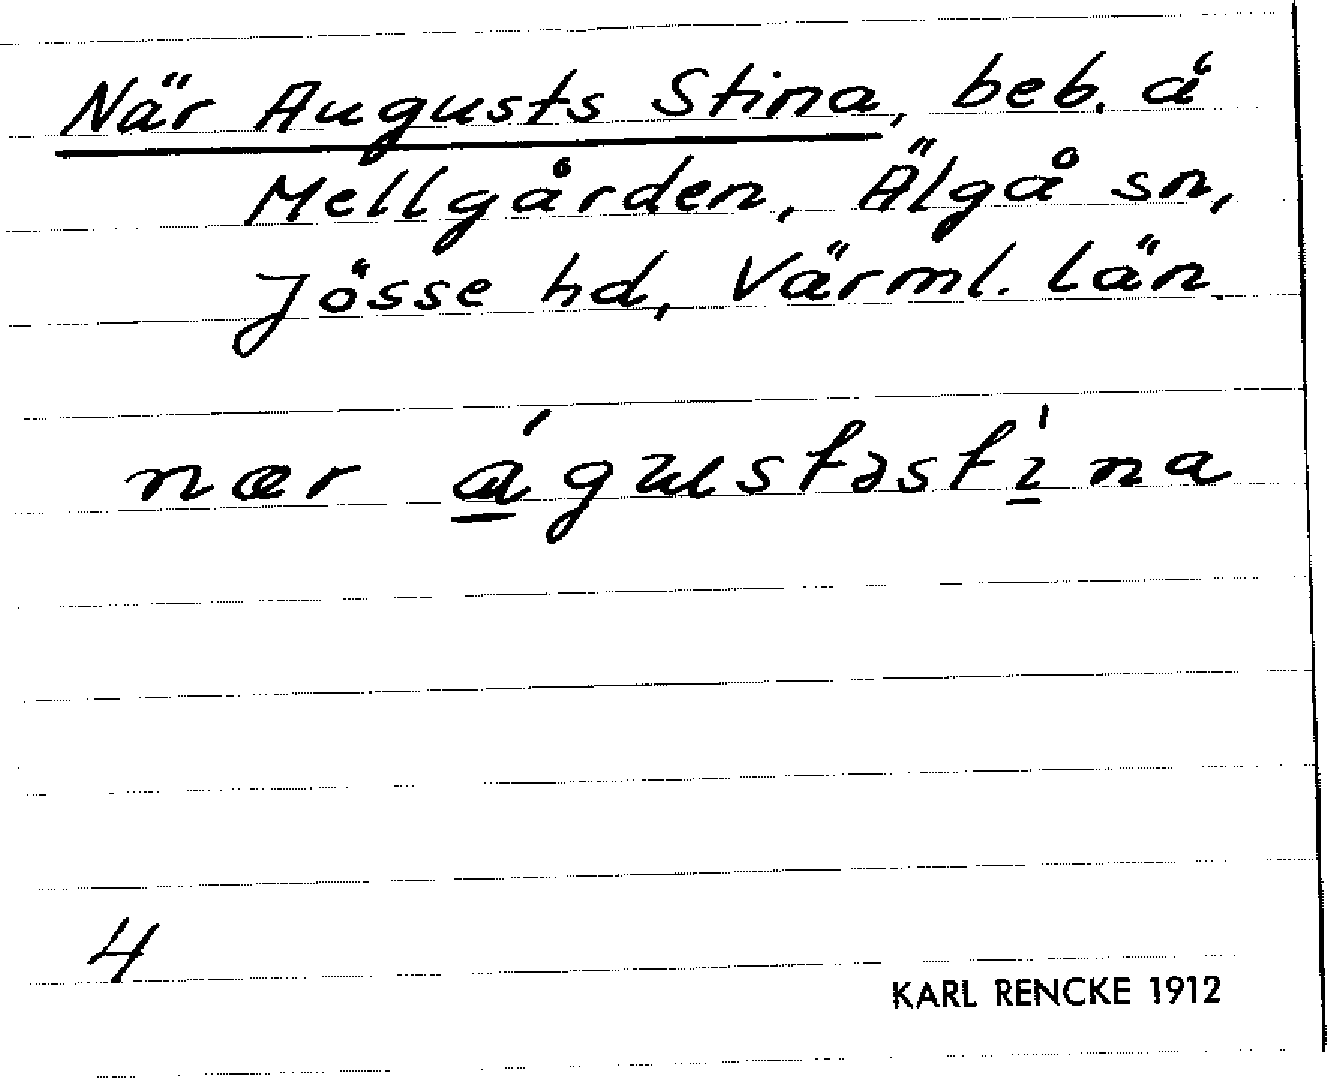 När Augusts Stina, beb. å
Mellgården, Älgå sn,
Jösse hd, Värml. län
nær águstəstı̍na
4
KARL RENCKE 1912